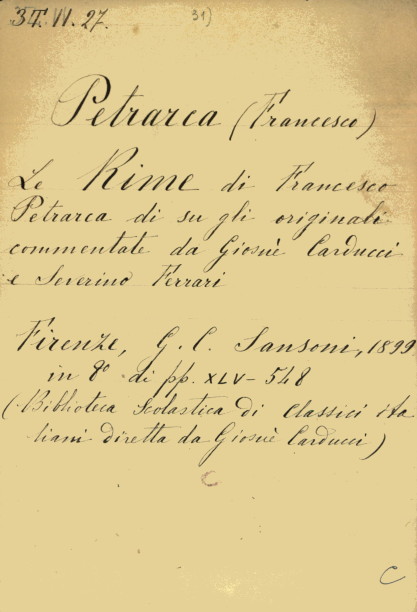 3T.VI.27.
31)
Petrarca (Francesco)
Le Rime di Francesco
Petrarca di su gli originali
commentate da Giosuè Carducci
e Severino Ferrari
Firenze, G. C. Sansoni, 1899
in 8° di pp. XLV-548
(Biblioteca Scolastica di Classici ita
liani diretta da Giosuè Carducci)
C
C